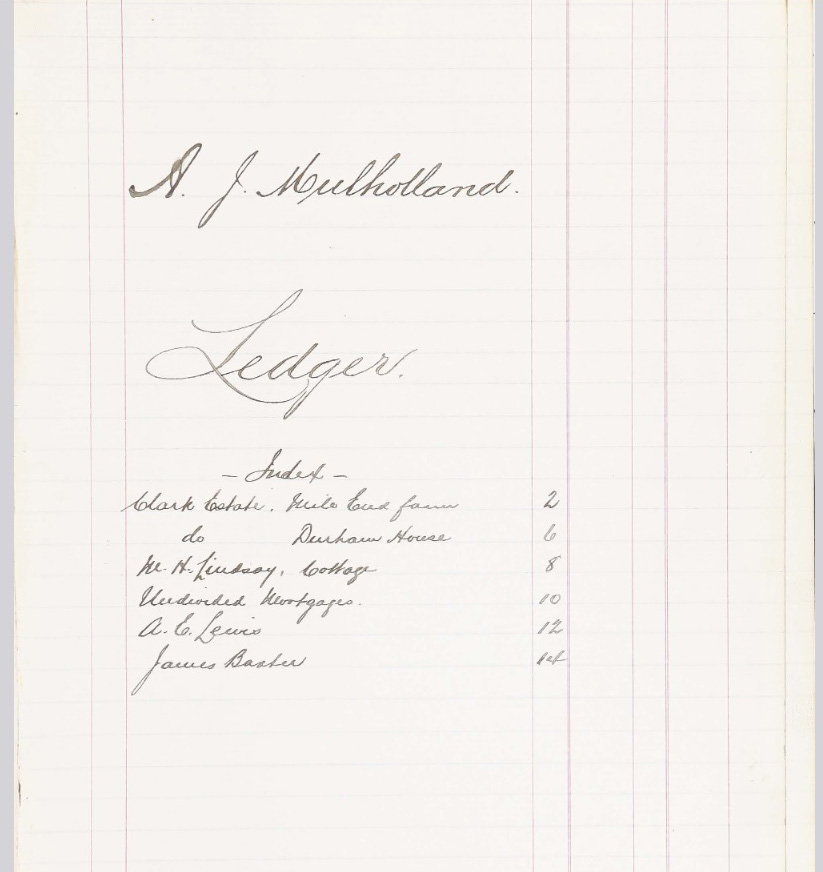 A. J. Mulholland.
Ledger.
- Index -
Clark Estate. Mile End farm 2
do Durham House 6
M. H. Lindsay, Cottage 8
Undivided Mortgages. 10
A. E. Lewis 12
James Baxter 14